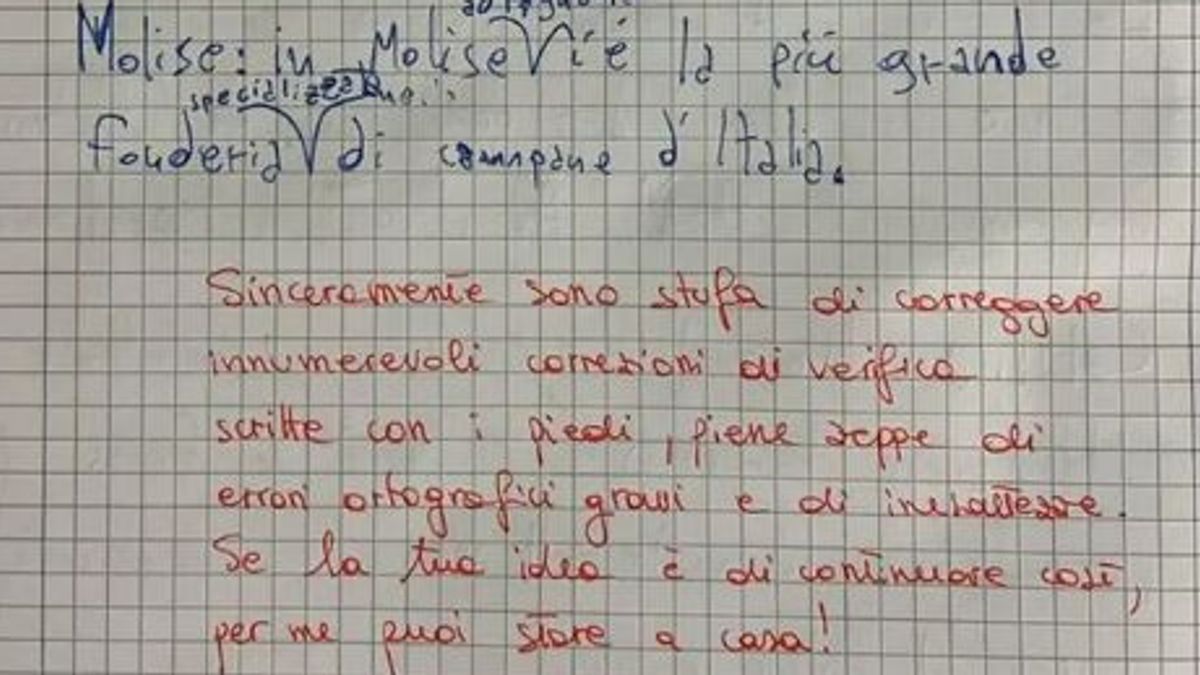 Molise: in Molise V'è la più grande
specializzata
fonderia di campane d'Italia.
Sinceramente sono stufa di correggere
innumerevoli correzioni di verifica
scritte con i piedi, piene zeppe di
errori ortografici gravi e di inesattezze.
Se la tua idea è di continuare così,
per me puoi stare a casa!